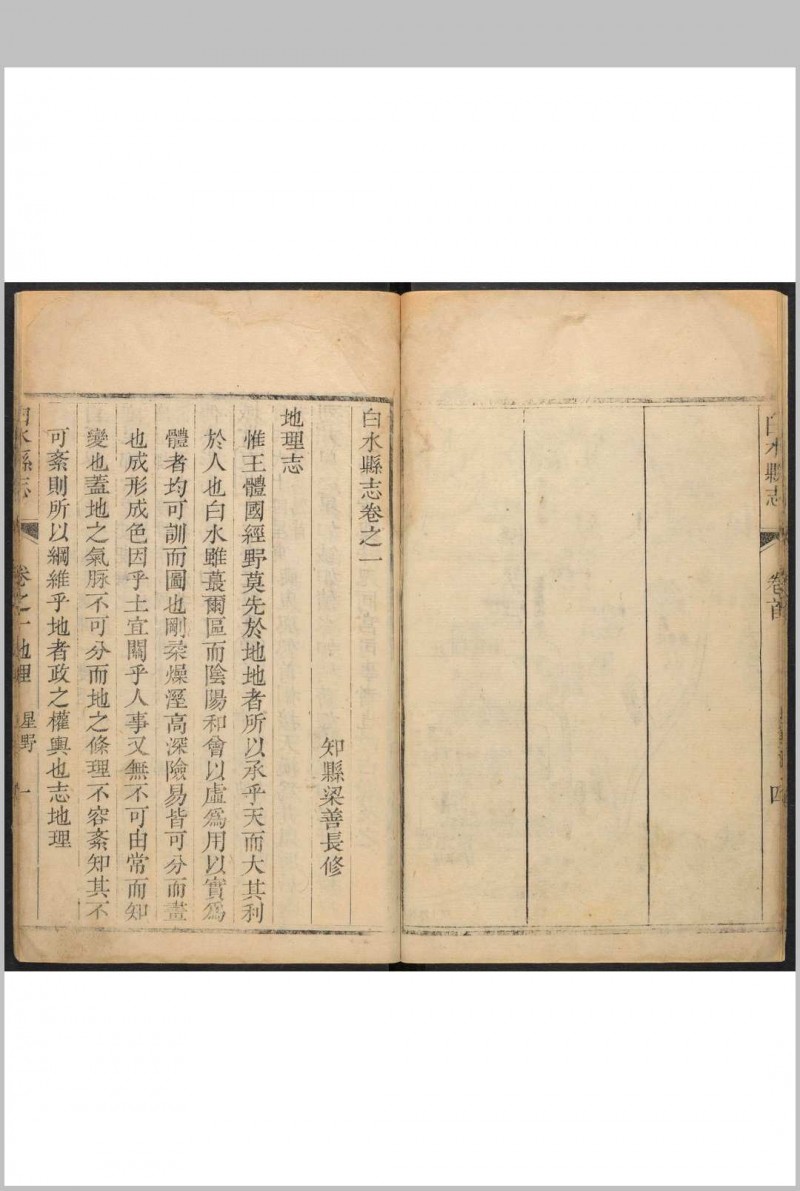 白水縣志
卷首
四
白水縣志卷之一
知縣梁善長修
地理志
惟王體國經野莫先於地地者所以承乎天而大其利
於人也白水雖蕞爾區而陰陽和會以虛爲用以實爲
體者均可訓而圖也剛柔燥溼高深險易皆可分而畫
也成形成色因乎土宜關乎人事又無不可由常而知
變也蓋地之氣脉不可分而地之條理不容紊知其不
可紊則所以綱維乎地者政之權輿也志地理
白水縣志
卷之一地理
星野
一